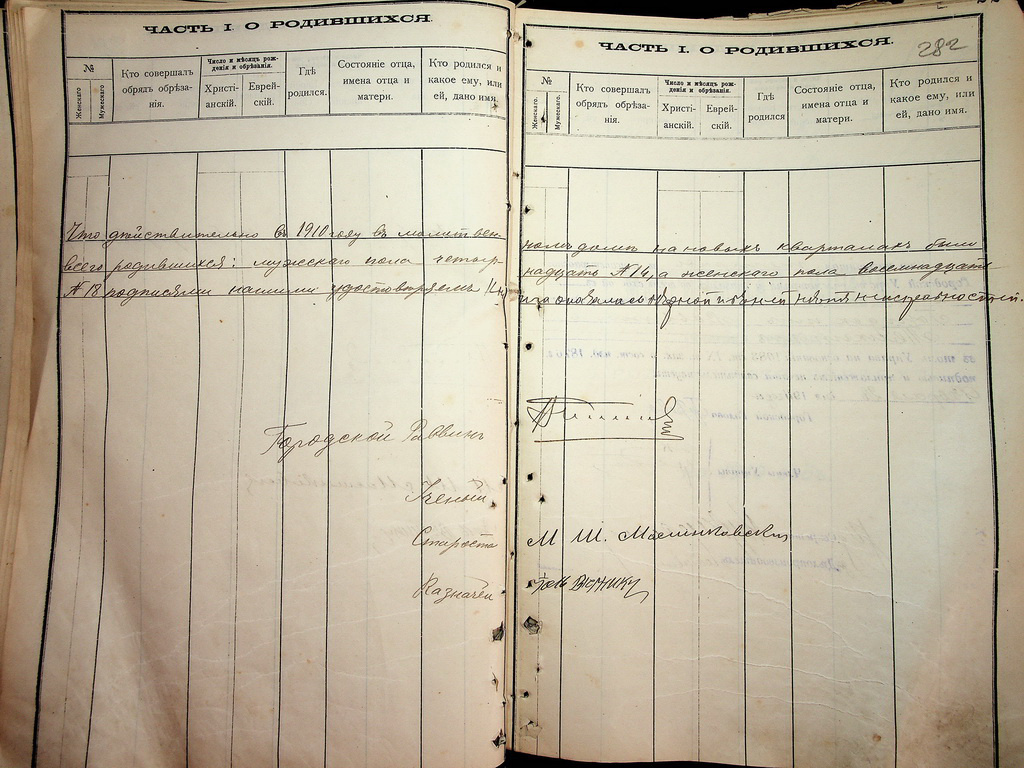 ЧАСТЬ I. О РОДИВШИХСЯ.
№
Женскаго
Мужескаго
Кто совершалъ обрядъ обрѣзанія.
Число и мѣсяцъ рожденія и обрѣзанія.
Христіанскій.
Еврейскій.
Гдѣ родился.
Состояніе отца, имена отца и матери.
Кто родился и какое ему, или ей, дано имя.
282
ЧАСТЬ I. О РОДИВШИХСЯ.
№
Женскаго.
Мужескаго.
Кто совершалъ обрядъ обрѣзанія.
Число и мѣсяцъ рожденія и обрѣзанія.
Христіанскій.
Еврейскій.
Гдѣ родился
Состояніе отца, имена отца и матери.
Кто родился и какое ему, или ей, дано имя.
Что дѣйствительно въ 1910 году въ молитвен
номъ домѣ на новыхъ кварталахъ было
всего родившихся: мужескаго пола четыр
надцать №14, а женского пола восемнадцать
№18 подписями нашими удостовѣряемъ
Городской Раввинъ
Ученый
Староста М Ш. Малинковскій
Казначей